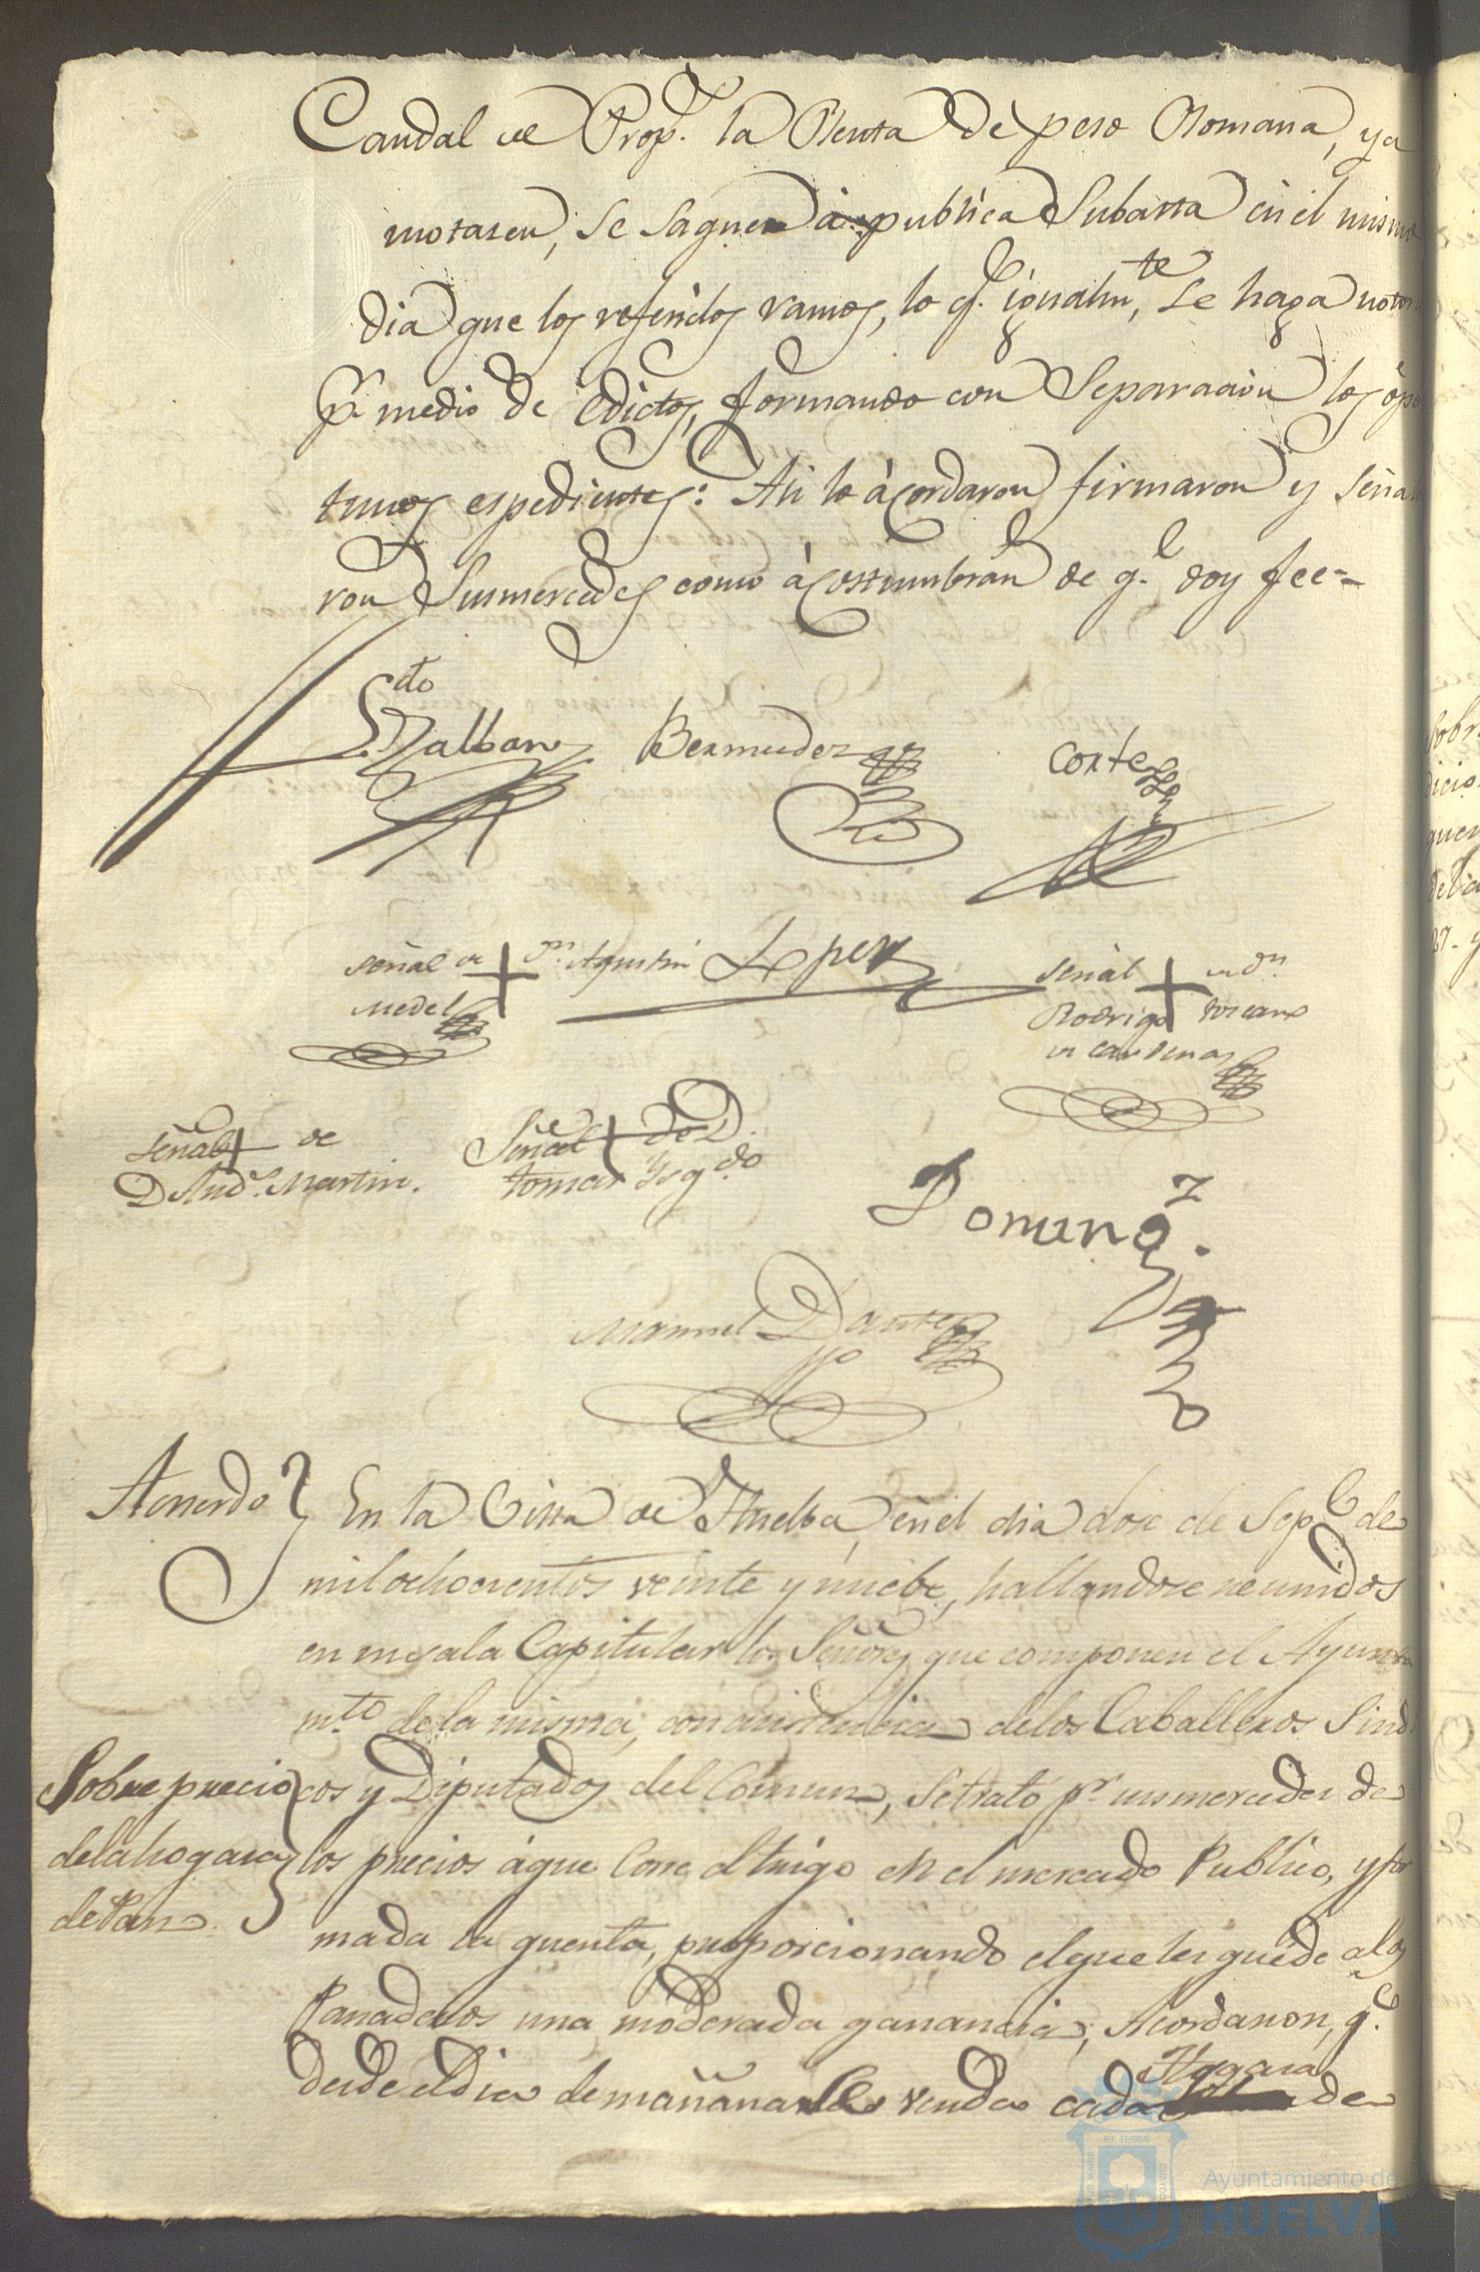 Caudal de Prop.s la Renta de peso Romana, y a
motasen, se saquen à publica Subasta en el mismo
dia que los referidos ramos, lo q.e igualm.te se haga notor
p.r medio de Edictos, formando con Separacion los opor
tunos espedientes: Asi lo àcordaron firmaron y Señala
ron Susmercedes como àcostumbran de q.e doy fee=
Bermudez Cortes
señal de + D.n Agustin
Medel
Lopez
señal + de D.n
Rodrigo toscano
de cardenas
señal + de
D And.s Martin.
Señal + de D.
tomas Ysq.do
Doming.z
Manuel Dantes
Acuerdo } En la Villa de Huelba, en el dia dose de Sep.e de
mil ochocientos veinte y nuebe, hallandose reunidos
en su sala Capitular los Señores que componen el Ayunta
m.to de la misma, con asistencia de los Caballeros Sindi
Sobre precio
de la hogasa
de Pan.
cos y Diputados del Comun, se trató p.r susmercedes de
los precios á que Corre el trigo en el mercado Publico, y for
mada la quenta, proporcionando el que les quéde a los
Panaderos una moderada ganancia; Acordaron, q.e
desde el dia de mañana se venda cada Hogasa de
Ayuntamiento de
HUELVA